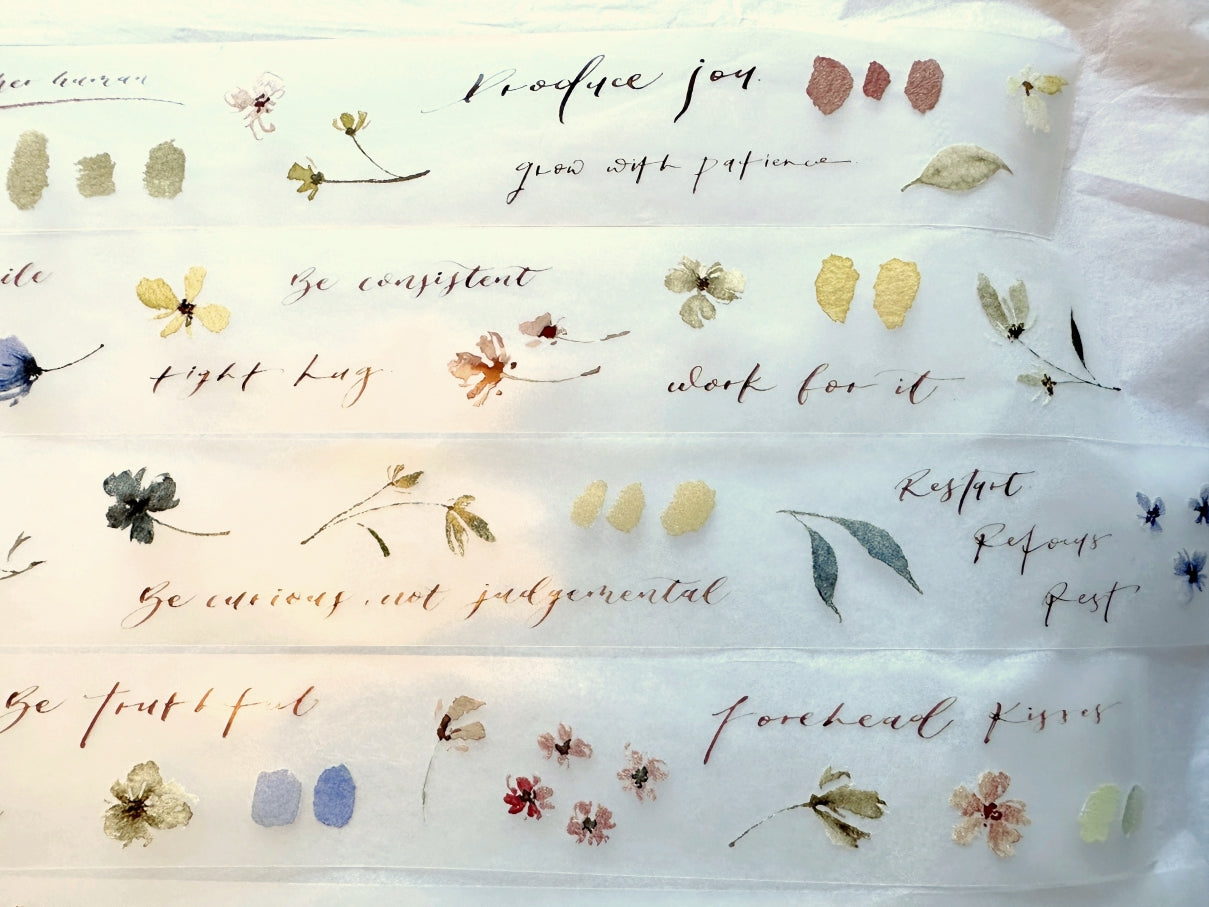 her human
Produce joy.
grow with patience
ile
Be consistent
tight hug.
work for it
Restart.
Refocus
Rest
Be curious, not judgemental
Be truthful
Forehead Kisses